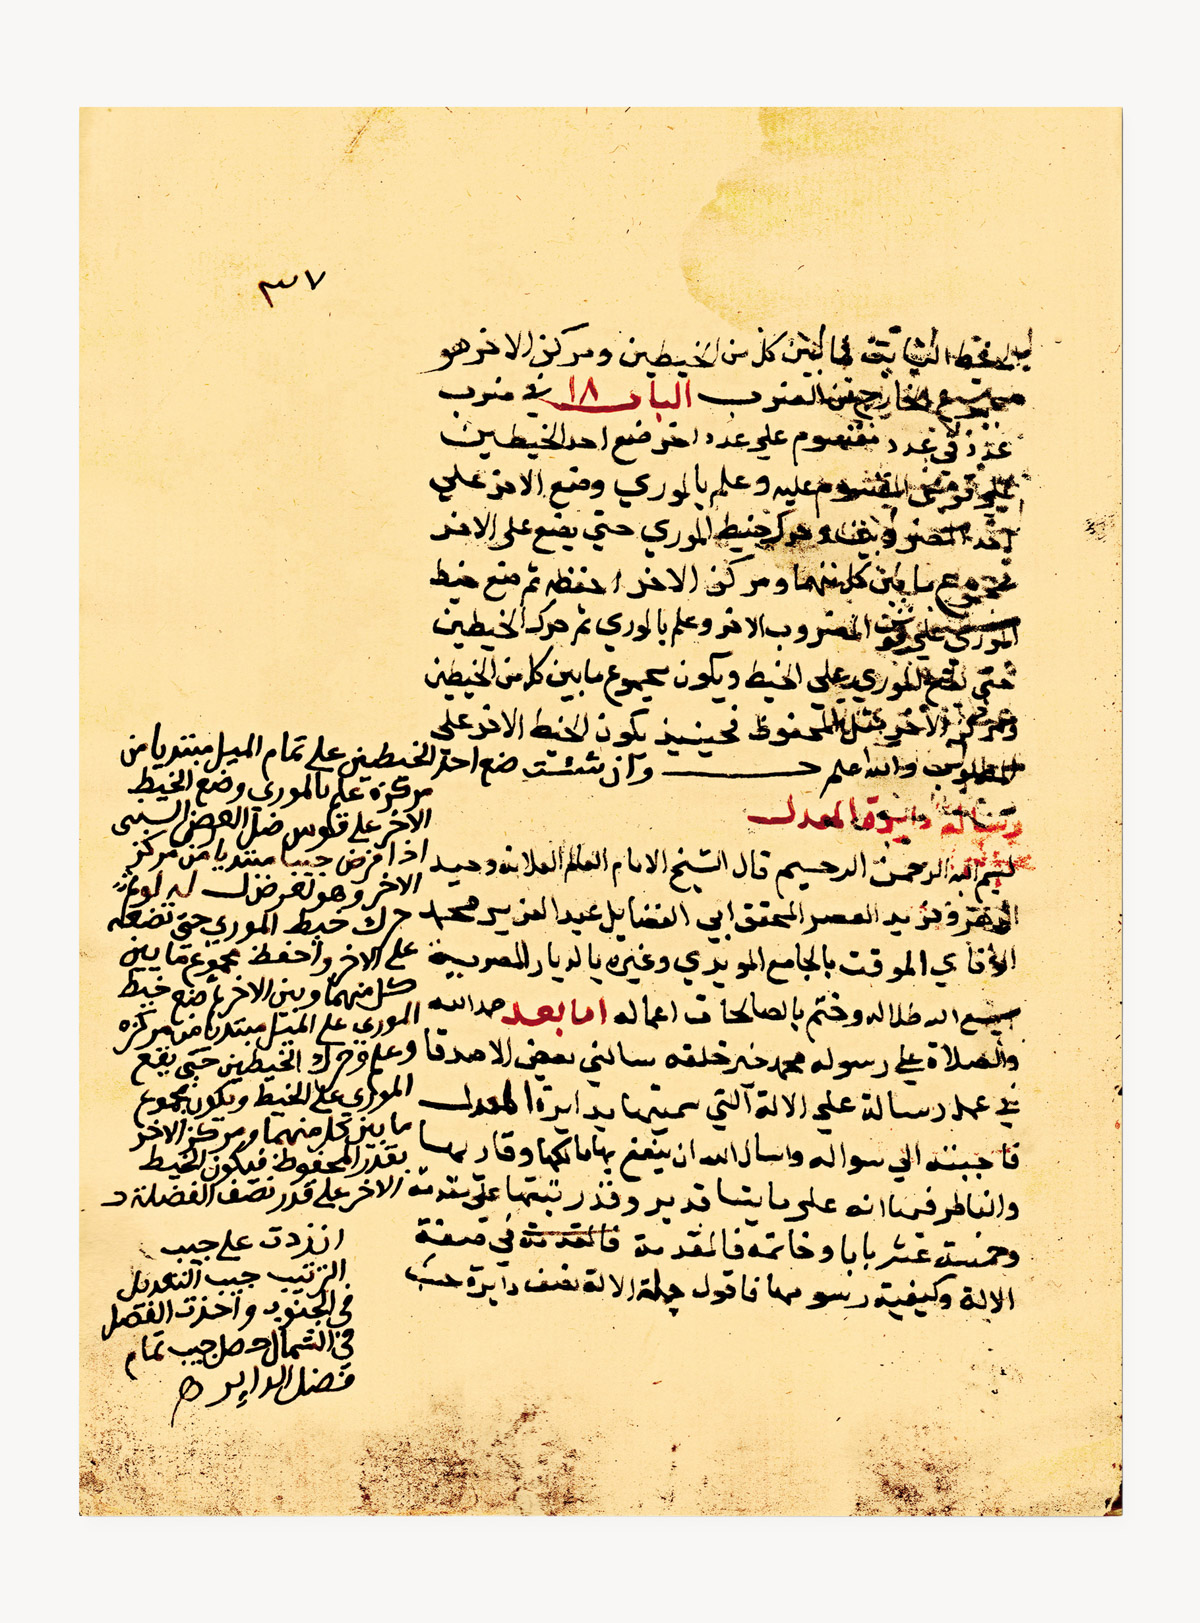 ٣٧
الخيط فما بين كل من الخيطين ومركز الاخر هو
الخارج من الضرب الباب ١٨ في ضرب
عدد في عدد مقسوم علي عدد اخر ضع احد الخيطين
علي المقسوم عليه وعلم بالموري وضع الاخر علي
احد المضروبين وحرك خيط الموري حتي يضع علي الاخر
مجموع ما بين كل منهما ومركز الاخر احفظه ثم ضع خيط
الموري علي المضروب الاخر وعلم بالموري ثم حرك الخيطين
حتي الموري علي الخيط ويكون مجموع ما بين كل من الخيطين
ومركز الاخر مثل المحفوظ فحينيذ يكون الخيط الاخر علي
المطلوب والله اعلم وان شئت ضع احد الخيطين علي تمام الميل مبتديا من
مركزه علم بالموري وضع الخيط
الاخر علي قوس ضل العرض الستيني
اذا فرض جيبا مبتديا من مركز
الاخر وهو
حرك خيط الموري حتي تضعه
علي الاخر واحفظ مجموع ما بين
كل منهما وبين الاخر ثم ضع خيط
الموري علي الميل مبتديا من مركزه
وعلم وحرك الخيطين حتي يقع
الموري علي الخيط ويكون مجموع
ما بين كل منهما ومركز الاخر
بقدر المحفوظ فيكون الخيط
الاخر علي قدر نصف الفضلة
ان زدت علي جيب
الترتيب جيب التعديل
في الجنوب واخذت الفضل
في الشمال حصل جيب تمام
فضل الداير
رسالة دايرة المعدل
بسم الله الرحمن الرحيم قال الشيخ الامام العالم العلامة وحيد
وفريد العصر المحقق ابي الفضايل عبد العزيز محمد
الوفاي الموقت بالجامع المويدي وغيره بالديار المصرية
الله ظلاله وختم بالصالحات اعماله اما بعد حمد الله
والصلاة علي رسوله محمد خير خلقه سالني بعض الاصدقا
في عمل رسالة علي الالة التي سميتها بدايرة المعدل
فاجبته الي سواله واسال الله ان ينفع بها مالكها وقاريها
والناظر فيها انه علي ما يشا قدير وقد رتبتها علي مقدمة
وخمسة عشر بابا وخاتمه فالمقدمة فالمقدمة في صفة
الالة وكيفية رسومها فاقول جملة الالة نصف دايرة